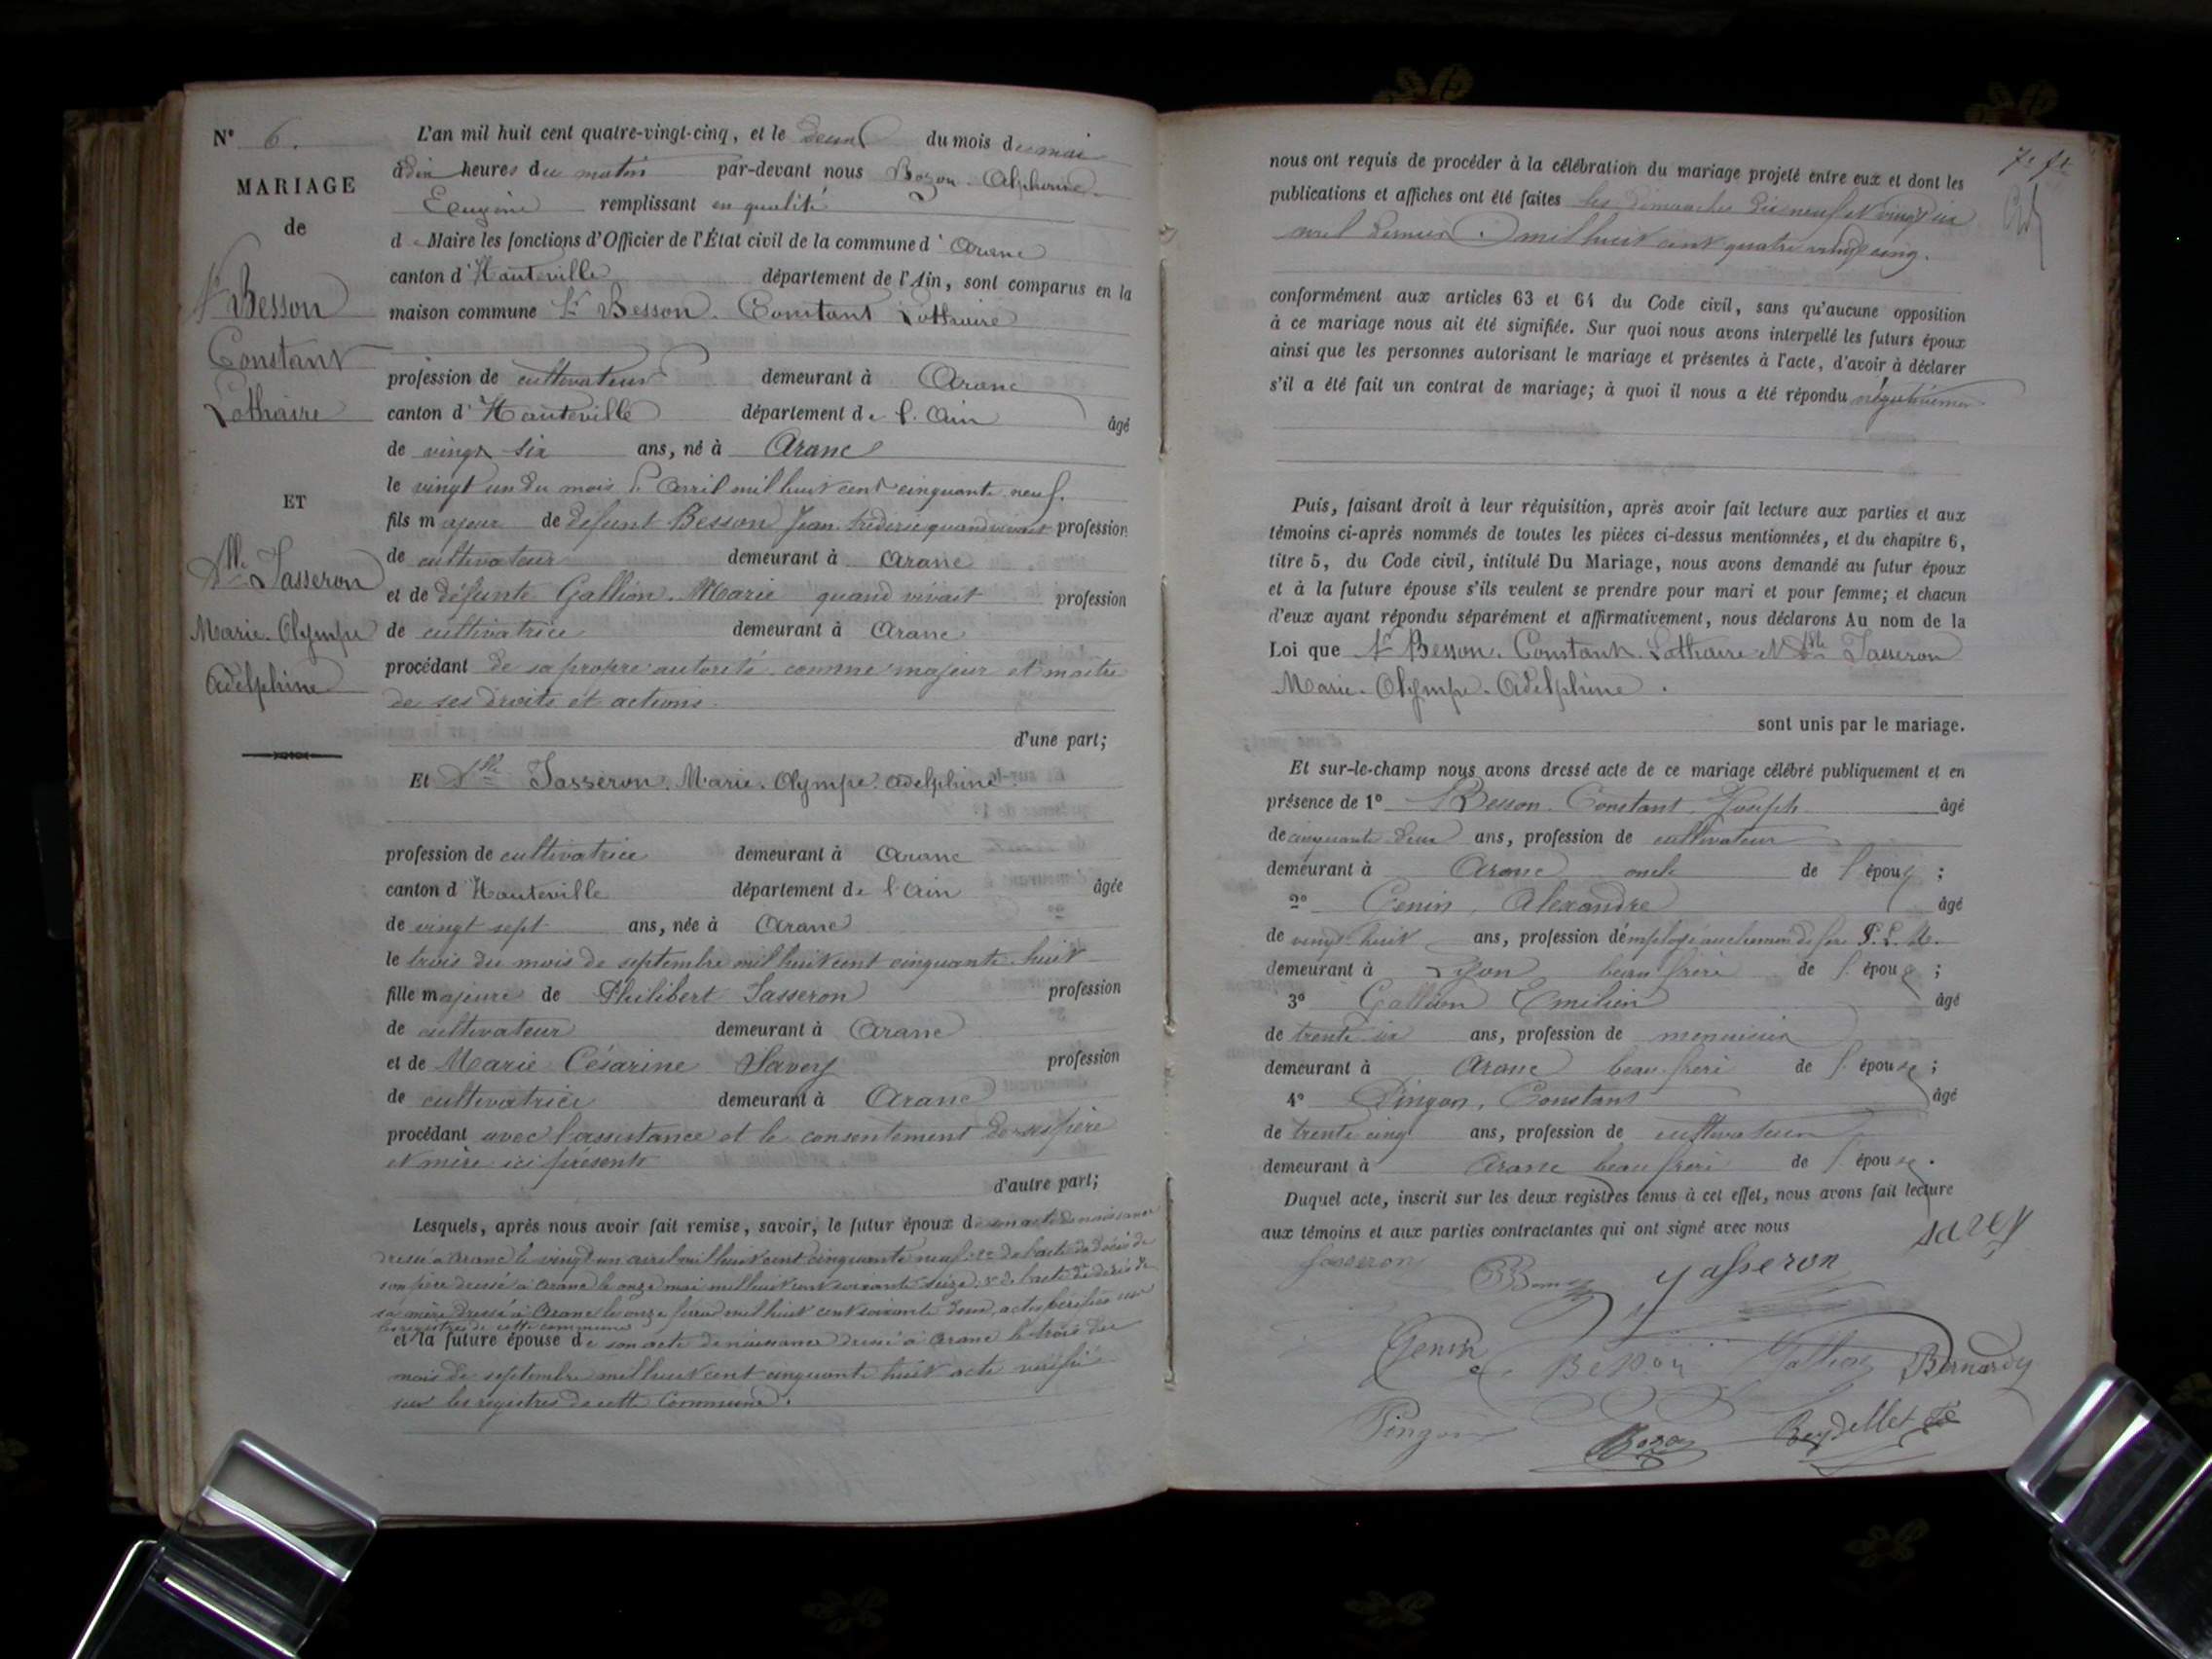 N° 6.
MARIAGE
de
Sr Besson
Constant
Lothaire
ET
Dlle Jasseron
Marie-Olympe
Adelphine
L'an mil huit cent quatre-vingt-cinq, et le deux du mois de mai
à dix heures du matin par-devant nous Bozon Alphonse
Eugène remplissant en qualité
de Maire les fonctions d'Officier de l'État civil de la commune d'Aranc
canton d'Hauteville département de l'Ain, sont comparus en la
maison commune Sr Besson. Constant Lothaire
profession de cultivateur demeurant à Aranc
canton d'Hauteville département de l'Ain âgé
de vingt six ans, né à Aranc
le vingt un du mois d'avril mil huit cent cinquante neuf.
fils majeur de défunt Besson Jean Frédéric quand vivait profession
de cultivateur demeurant à Aranc
et de défunte Gallion. Marie quand vivait profession
de cultivatrice demeurant à Aranc
procédant de sa propre autorité comme majeur et maître
de ses droits et actions.
d'une part;
Et Dlle Jasseron. Marie. Olympe. Adelphine.
profession de cultivatrice demeurant à Aranc
canton d'Hauteville département de l'Ain âgée
de vingt sept ans, née à Aranc
le trois du mois de septembre mil huit cent cinquante huit
fille majeure de Philibert Jasseron profession
de cultivateur demeurant à Aranc
et de Marie Césarine Savey profession
de cultivatrice demeurant à Aranc
procédant avec l'assistance et le consentement de ses père
et mère ici présents
d'autre part;
Lesquels, après nous avoir fait remise, savoir, le futur époux de son acte de naissance
dressé à Aranc le vingt un avril mil huit cent cinquante neuf; 2° de l'acte de décès de
son père dressé à Aranc le onze mai mil huit cent soixante seize; 3° de l'acte de décès de
sa mère dressé à Aranc le onze mil huit cent soixante deux, actes vérifiés sur
les registres de cette commune
et la future épouse de son acte de naissance dressé à Aranc le trois du
mois de septembre mil huit cent cinquante huit acte vérifié
sur les registres de cette Commune.
7e ft
nous ont requis de procéder à la célébration du mariage projeté entre eux et dont les
publications et affiches ont été faites les dimanches dix neuf et vingt six
avril dernier mil huit cent quatre vingt cinq.
conformément aux articles 63 et 64 du Code civil, sans qu'aucune opposition
à ce mariage nous ait été signifiée. Sur quoi nous avons interpellé les futurs époux
ainsi que les personnes autorisant le mariage et présentes à l'acte, d'avoir à déclarer
s'il a été fait un contrat de mariage; à quoi il nous a été répondu négativement
Puis, faisant droit à leur réquisition, après avoir fait lecture aux parties et aux
témoins ci-après nommés de toutes les pièces ci-dessus mentionnées, et du chapitre 6,
titre 5, du Code civil, intitulé Du Mariage, nous avons demandé au futur époux
et à la future épouse s'ils veulent se prendre pour mari et pour femme; et chacun
d'eux ayant répondu séparément et affirmativement, nous déclarons Au nom de la
Loi que Sr Besson. Constant. Lothaire et Dlle Jasseron
Marie-Olympe-Adelphine.
sont unis par le mariage.
Et sur-le-champ nous avons dressé acte de ce mariage célébré publiquement et en
présence de 1° Besson. Constant Joseph âgé
de cinquante deux ans, profession de cultivateur
demeurant à Aranc oncle de l'époux;
2° Genin, Alexandre âgé
de vingt huit ans, profession d'employé au chemin de fer P. L. M.
demeurant à Lyon beau frère de l'époux;
3° Gallion Emilien âgé
de trente six ans, profession de menuisier
demeurant à Aranc beau frère de l'épouse;
4° Pingon, Constant âgé
de trente cinq ans, profession de cultivateur
demeurant à Aranc beau frère de l'épouse.
Duquel acte, inscrit sur les deux registres tenus à cet effet, nous avons fait lecture
aux témoins et aux parties contractantes qui ont signé avec nous
Jasseron Besson Jasseron Savey
Genin Besson Gallion Bernardy
Pingon Bozon Beydellet